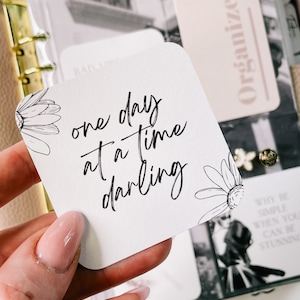 one day
at a time
darling
Organize
WHY BE
SIMPLE
WHEN YOU
CAN BE
STUNNING